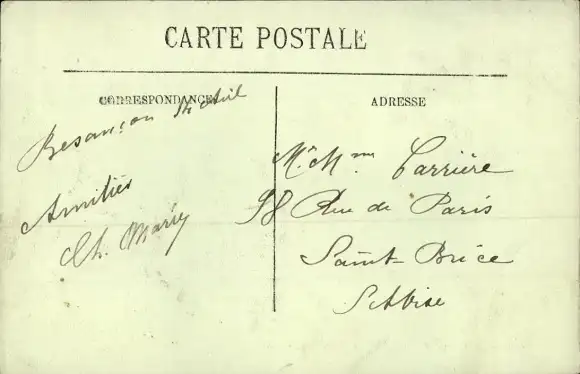 CARTE POSTALE
CORRESPONDANCE
Besançon 14 Avril
Amitiés
Ch. Mariey
ADRESSE
Mr Mme Carrière
98 Rue de Paris
Saint-Brice
S et Oise